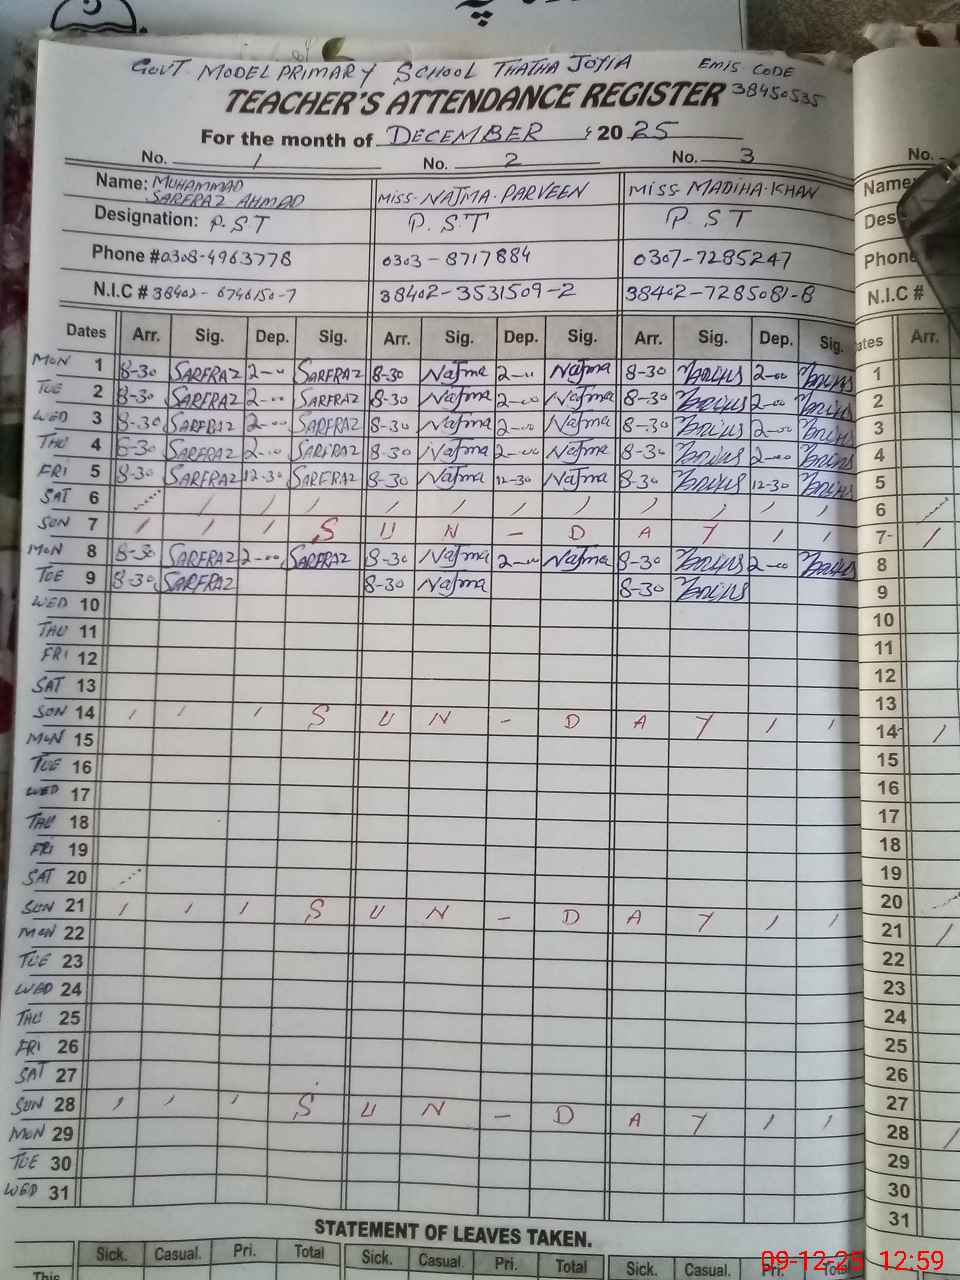 GOVT MODEL PRIMARY SCHOOL THATHA JOYIA EMIS CODE
TEACHER'S ATTENDANCE REGISTER 38450535
For the month of DECEMBER , 2025
No. 1 No. 2 No. 3 No.
Name: MUHAMMAD SARFRAZ AHMAD MISS-NAJMA-PARVEEN MISS-MADIHA-KHAN Name:
Designation: P.ST P.ST P.ST Des
Phone #0308-4963778 0303-8717884 0307-7285247 Phone
N.I.C # 38402-6746150-7 38402-3531509-2 38402-7285081-8 N.I.C #
Dates Arr. Sig. Dep. Sig. Arr. Sig. Dep. Sig. Arr. Sig. Dep. Sig. ates Arr.
MON 1 8-30 SARFRAZ 2-00 SARFRAZ 8-30 Najma 2-00 Najma 8-30 2-00 1
TUE 2 8-30 SARFRAZ 2-00 SARFRAZ 8-30 Najma 2-00 Najma 8-30 2-00 2
WED 3 8-30 SARFRAZ 2-00 SARFRAZ 8-30 Najma 2-00 Najma 8-30 2-00 3
THU 4 8-30 SARFRAZ 2-00 SARFRAZ 8-30 Najma 2-00 Najma 8-30 2-00 4
FRI 5 8-30 SARFRAZ 12-30 SARFRAZ 8-30 Najma 12-30 Najma 8-30 12-30 5
SAT 6 6
SUN 7 S U N - D A Y 7
MON 8 8-30 SARFRAZ 2-00 SARFRAZ 8-30 Najma 2-00 Najma 8-30 2-00 8
TUE 9 8-30 SARFRAZ 8-30 Najma 8-30 9
WED 10 10
THU 11 11
FRI 12 12
SAT 13 13
SUN 14 S U N - D A Y 14
MON 15 15
TUE 16 16
WED 17 17
THU 18 18
FRI 19 19
SAT 20 20
SUN 21 S U N - D A Y 21
MON 22 22
TUE 23 23
WED 24 24
THU 25 25
FRI 26 26
SAT 27 27
SUN 28 S U N - D A Y 28
MON 29 29
TUE 30 30
WED 31 31
STATEMENT OF LEAVES TAKEN.
Sick. Casual. Pri. Total Sick. Casual. Pri. Total Sick. Casual. Pri. Total
This
09-12-25 12:59